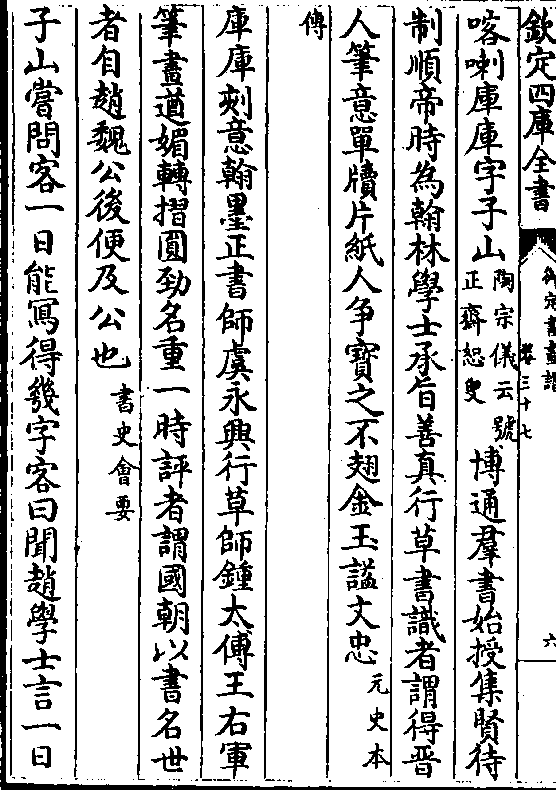 欽定四庫全書
御定書畫譜
卷三十七
六
喀喇庫庫字子山陶宗儀云號正齋恕叟博通羣書始授集賢待
制順帝時為翰林學士承旨善真行草書識者謂得晉
人筆意單牘片紙人争寶之不翅金玉諡文忠元史本
傳
庫庫刻意翰墨正書師虞永興行草師鍾太傅王右軍
筆畫遒媚轉摺圓勁名重一時評者謂國朝以書名世
者自趙魏公後便及公也書史會要
子山嘗問客一日能寫得幾字客曰聞趙學士言一日